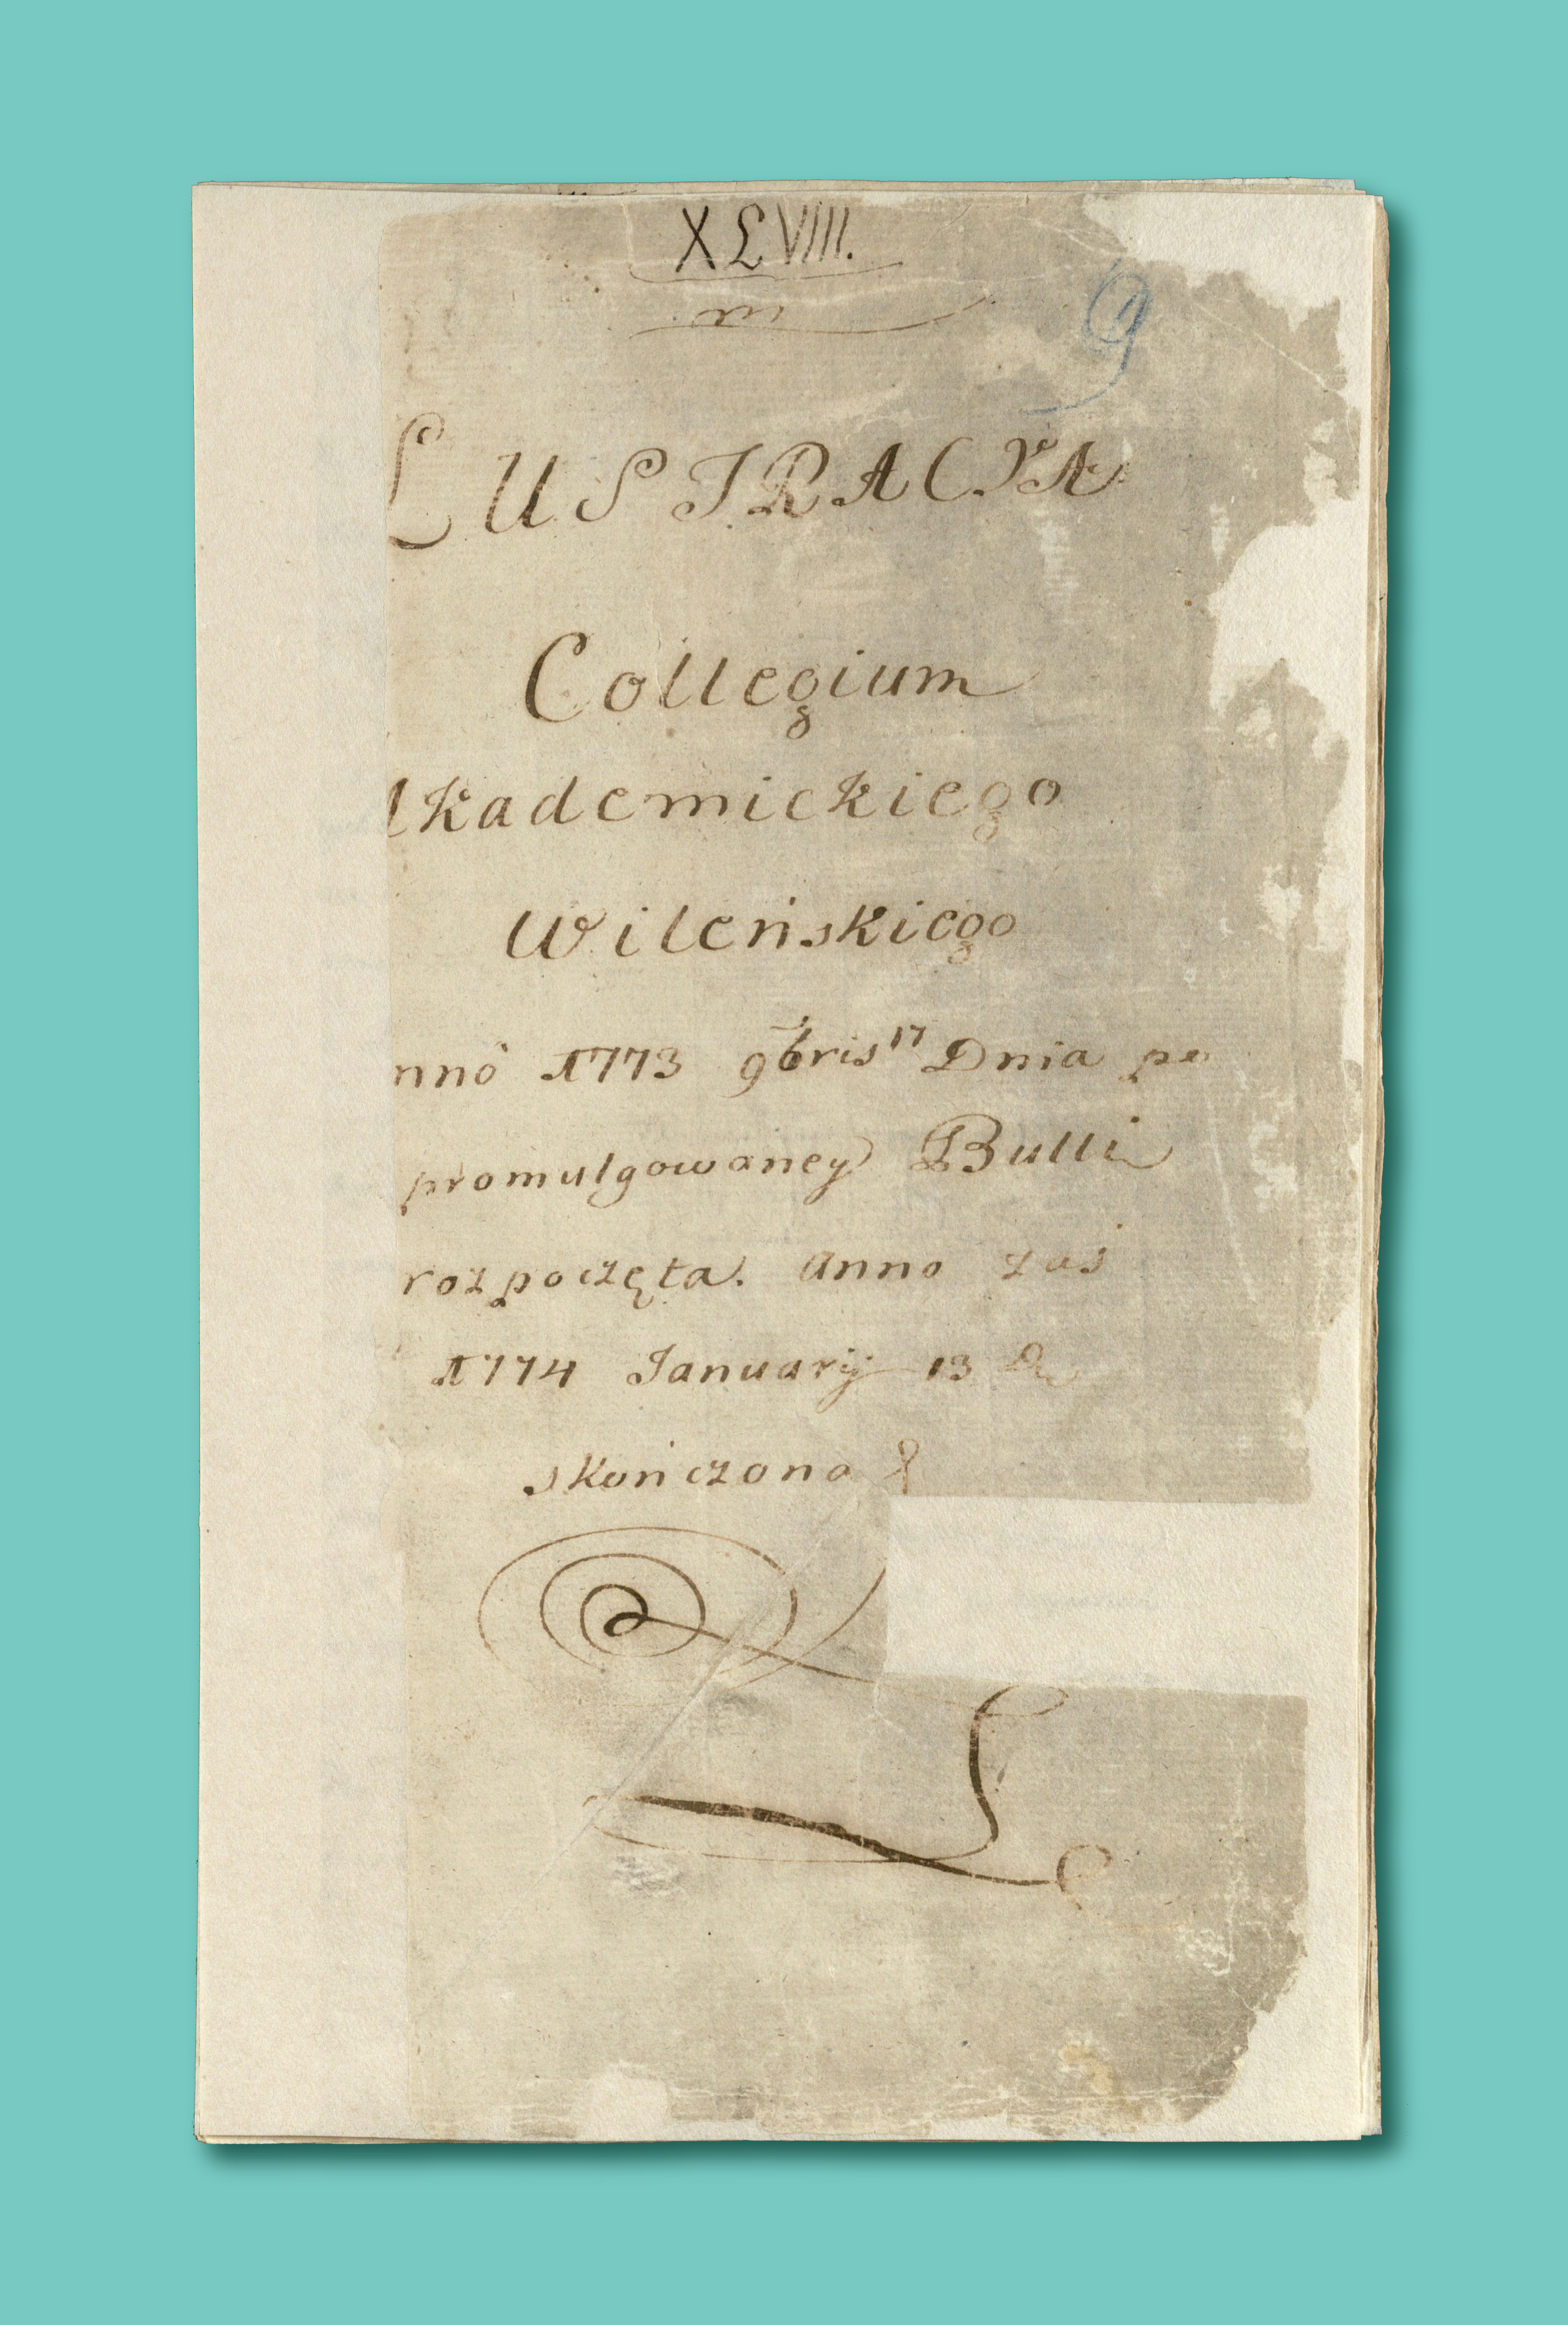 XLVIII.
m
9
LUSTRACYA
Collegium
Akademickiego
Wileńskiego
nnô 1773 9bris 17 Dnia po
promulgowaney Bulli
rozpoczęta. Anno zaś
1774 Januarÿ 13 D
skończona